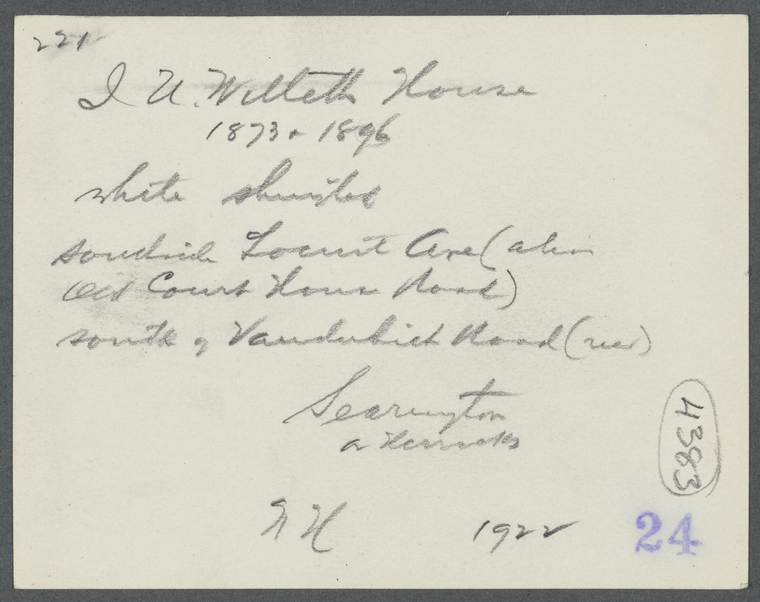 221
I. U. Willets House
1873 + 1896
white shingled
southside Locust Ave (also
Old Court House Road)
south of Vanderbilt Road (new)
Searington
or Herricks
N H 1922
4383
24